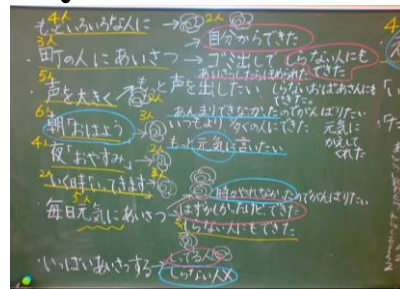 4人
もっといろいろな人に → 2人 自分からできた
3人
町の人にあいさつ → ゴミ出して しらない人にも
あいさつしたらほめられた できた
5人
声を大きく → もっと声を出したい しらないおばあさんにも
できた。
6人 あんまりできなかったのでがんばりたい
朝「おはよう」 → 3人 いつもより 多くの人にできた 元気に
かえして
くれた
4人
夜「おやすみ」 → もっと元気に言いたい
2人
いく時「いってきます」 →
時々やれなかったのでがんばりたい
5人
・毎日元気にあいさつ はずかしかったけど、できた
しらない人にもできた
・いっぱいあいさつする → してる人
しらない人 ×